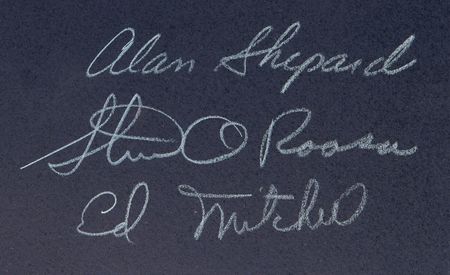 Alan Shepard
Stuart A Roosa
Ed Mitchell